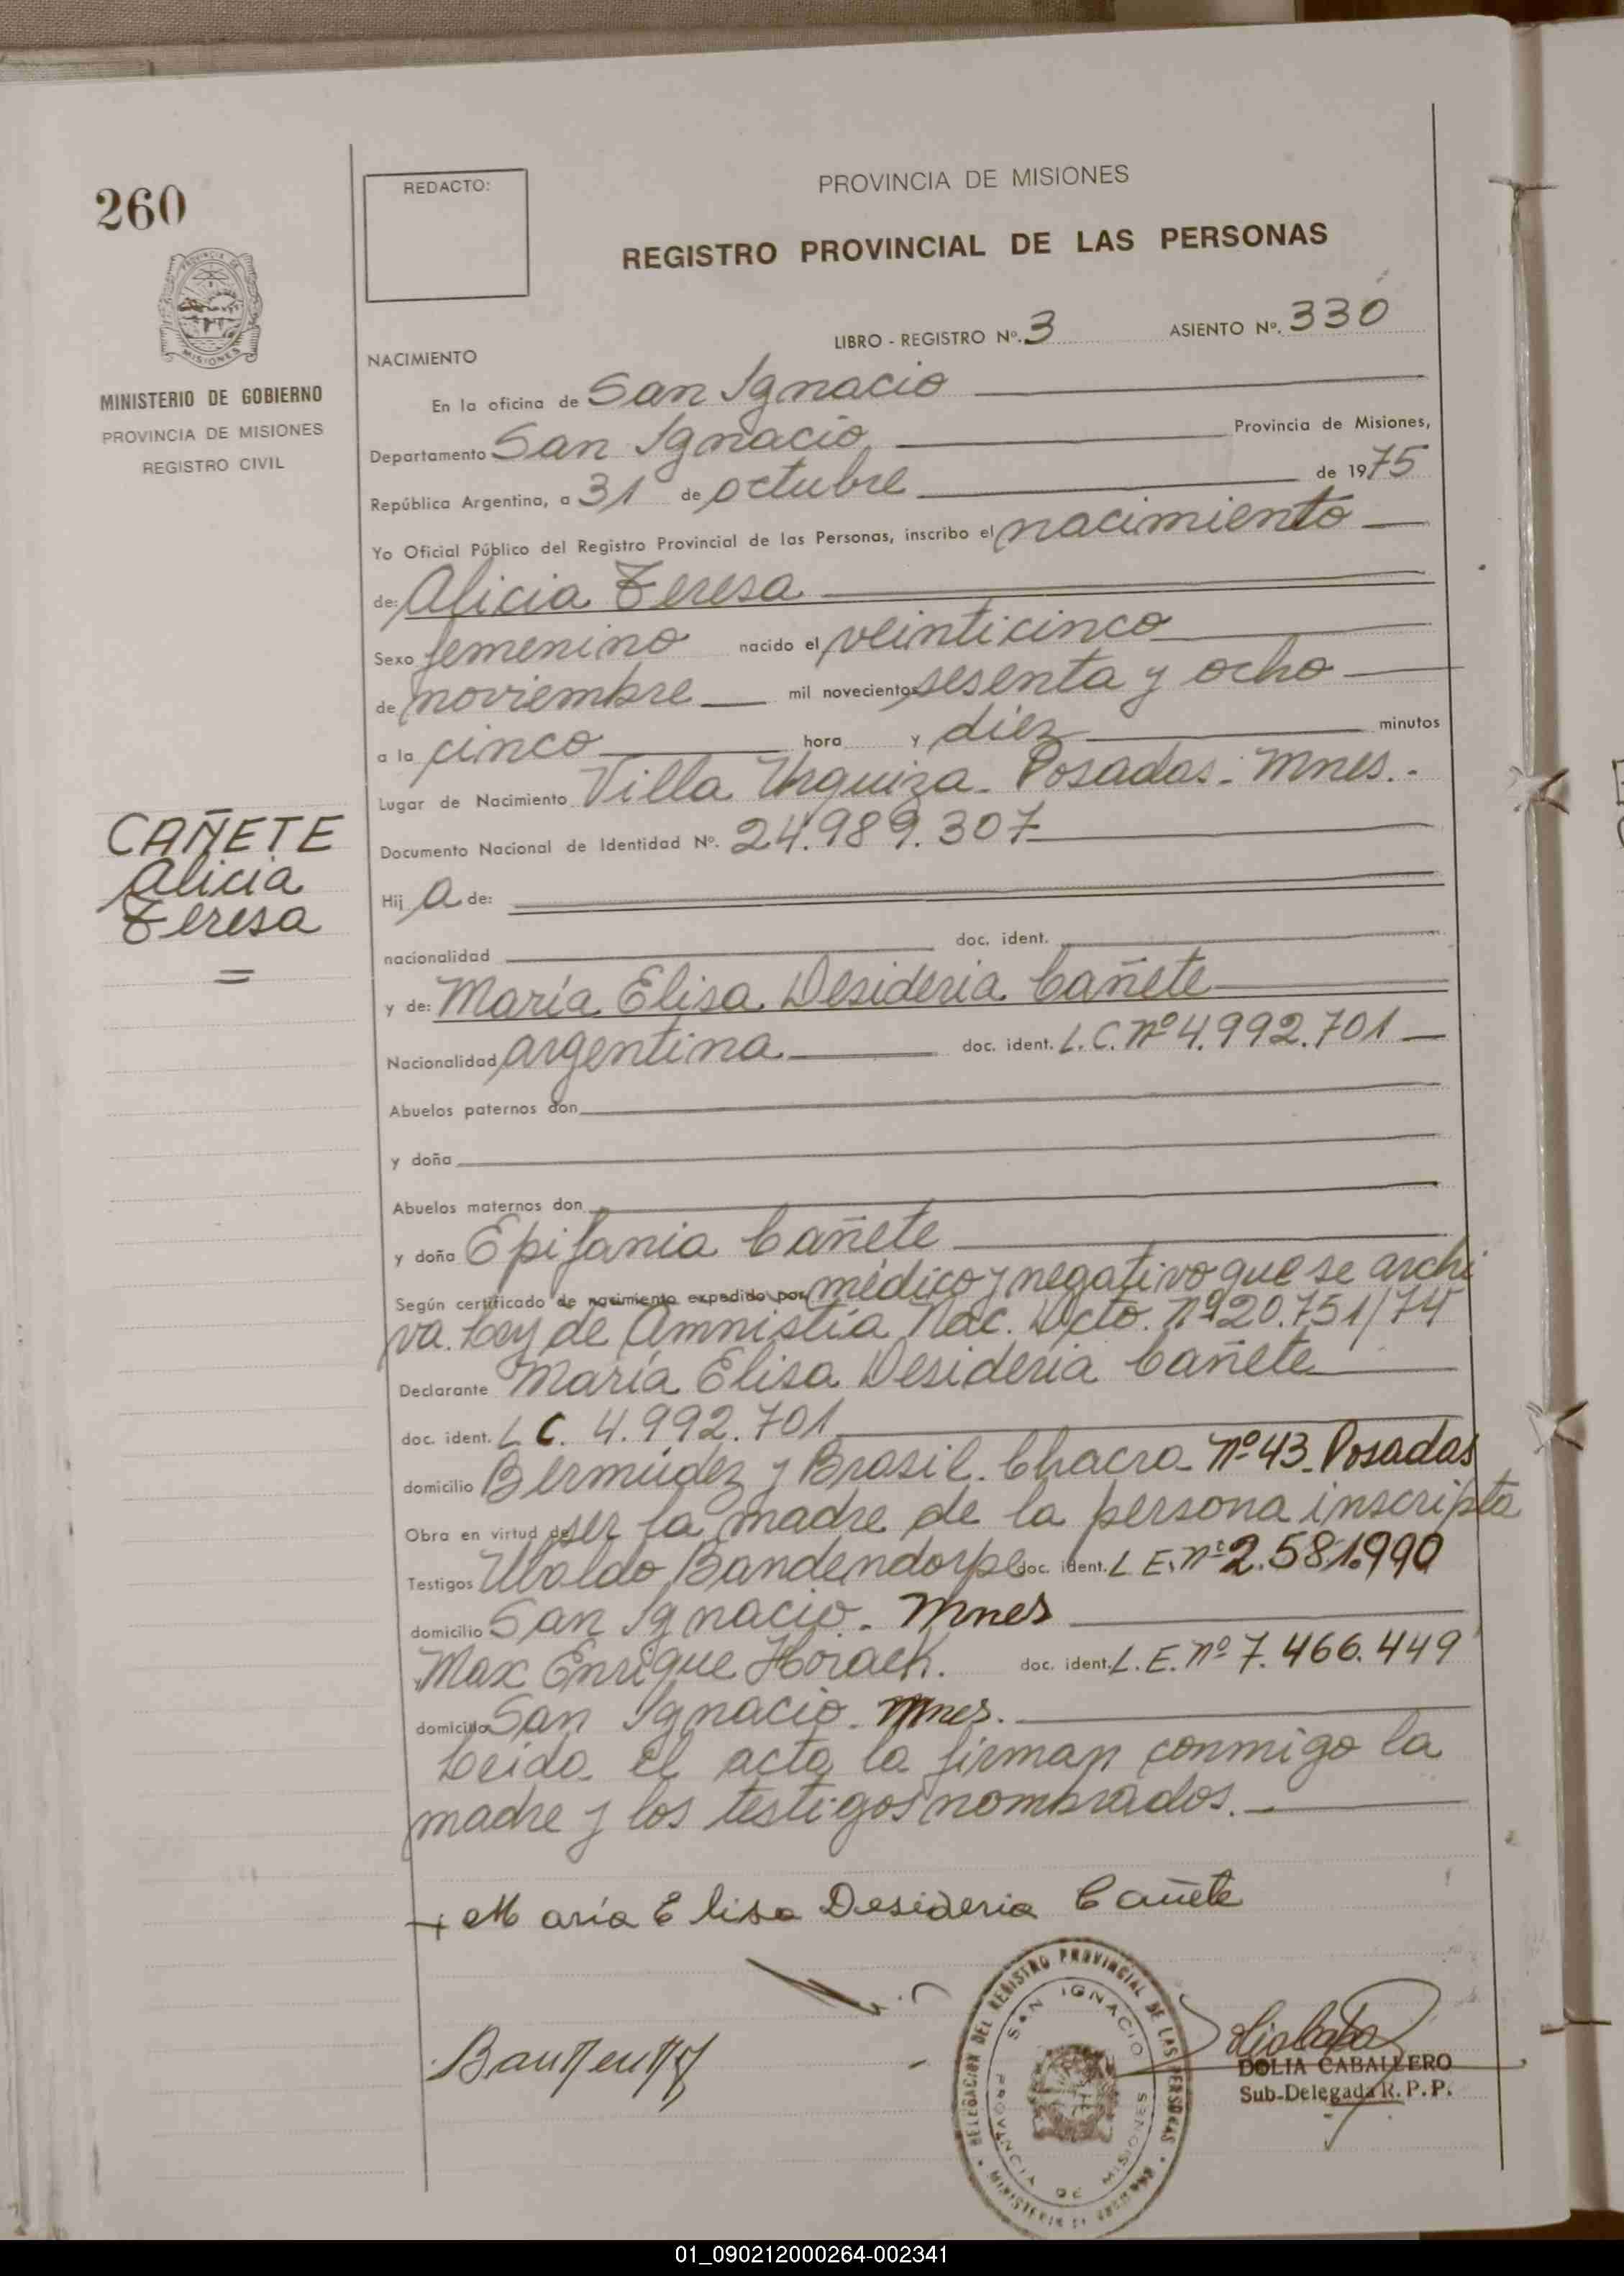 260
REDACTO:
PROVINCIA DE MISIONES
REGISTRO PROVINCIAL DE LAS PERSONAS
PROVINCIA DE MISIONES
MINISTERIO DE GOBIERNO
PROVINCIA DE MISIONES
REGISTRO CIVIL
LIBRO - REGISTRO Nº. 3 ASIENTO Nº. 330
NACIMIENTO
En la oficina de San Ignacio
Departamento San Ignacio Provincia de Misiones,
República Argentina, a 31 de octubre de 1975
Yo Oficial Público del Registro Provincial de las Personas, inscribo el nacimiento
de: Alicia Teresa
Sexo femenino nacido el veinticinco
de noviembre mil novecientos sesenta y ocho
a la cinco hora y diez minutos
Lugar de Nacimiento Villa Urquiza - Posadas - Mnes.-
Documento Nacional de Identidad Nº. 24.989.307
CAÑETE
Alicia
Teresa
Hij a de:
nacionalidad doc. ident.
y de: María Elisa Desideria Cañete
Nacionalidad argentina doc. ident. L.C. Nº 4.992.701
Abuelos paternos don
y doña
Abuelos maternos don
y doña Epifania Cañete
Según certificado de nacimiento expedido por médico y negativo que se archi
va. Ley de Amnistía Nac. Dcto. Nº 20.751/74
Declarante María Elisa Desideria Cañete
doc. ident. L C. 4.992.701
domicilio Bermúdez y Brasil. Chacra Nº 43 - Posadas
Obra en virtud de ser la madre de la persona inscripta
Testigos Ubaldo Bandendorpe doc. ident. L E. Nº 2.581.990
domicilio San Ignacio - Mnes
Max Enrique Horack. doc. ident. L.E. Nº 7.466.449
domicilio San Ignacio - Mnes.
Leida el acta la firman conmigo la
madre y los testigos nombrados.-
+ María Elisa Desideria Cañete
DELEGACION DEL REGISTRO PROVINCIAL DE LAS PERSONAS
SAN IGNACIO
PROVINCIA DE MISIONES
DOLIA CABALLERO
Sub-Delegada R.P.P.
01_090212000264-002341